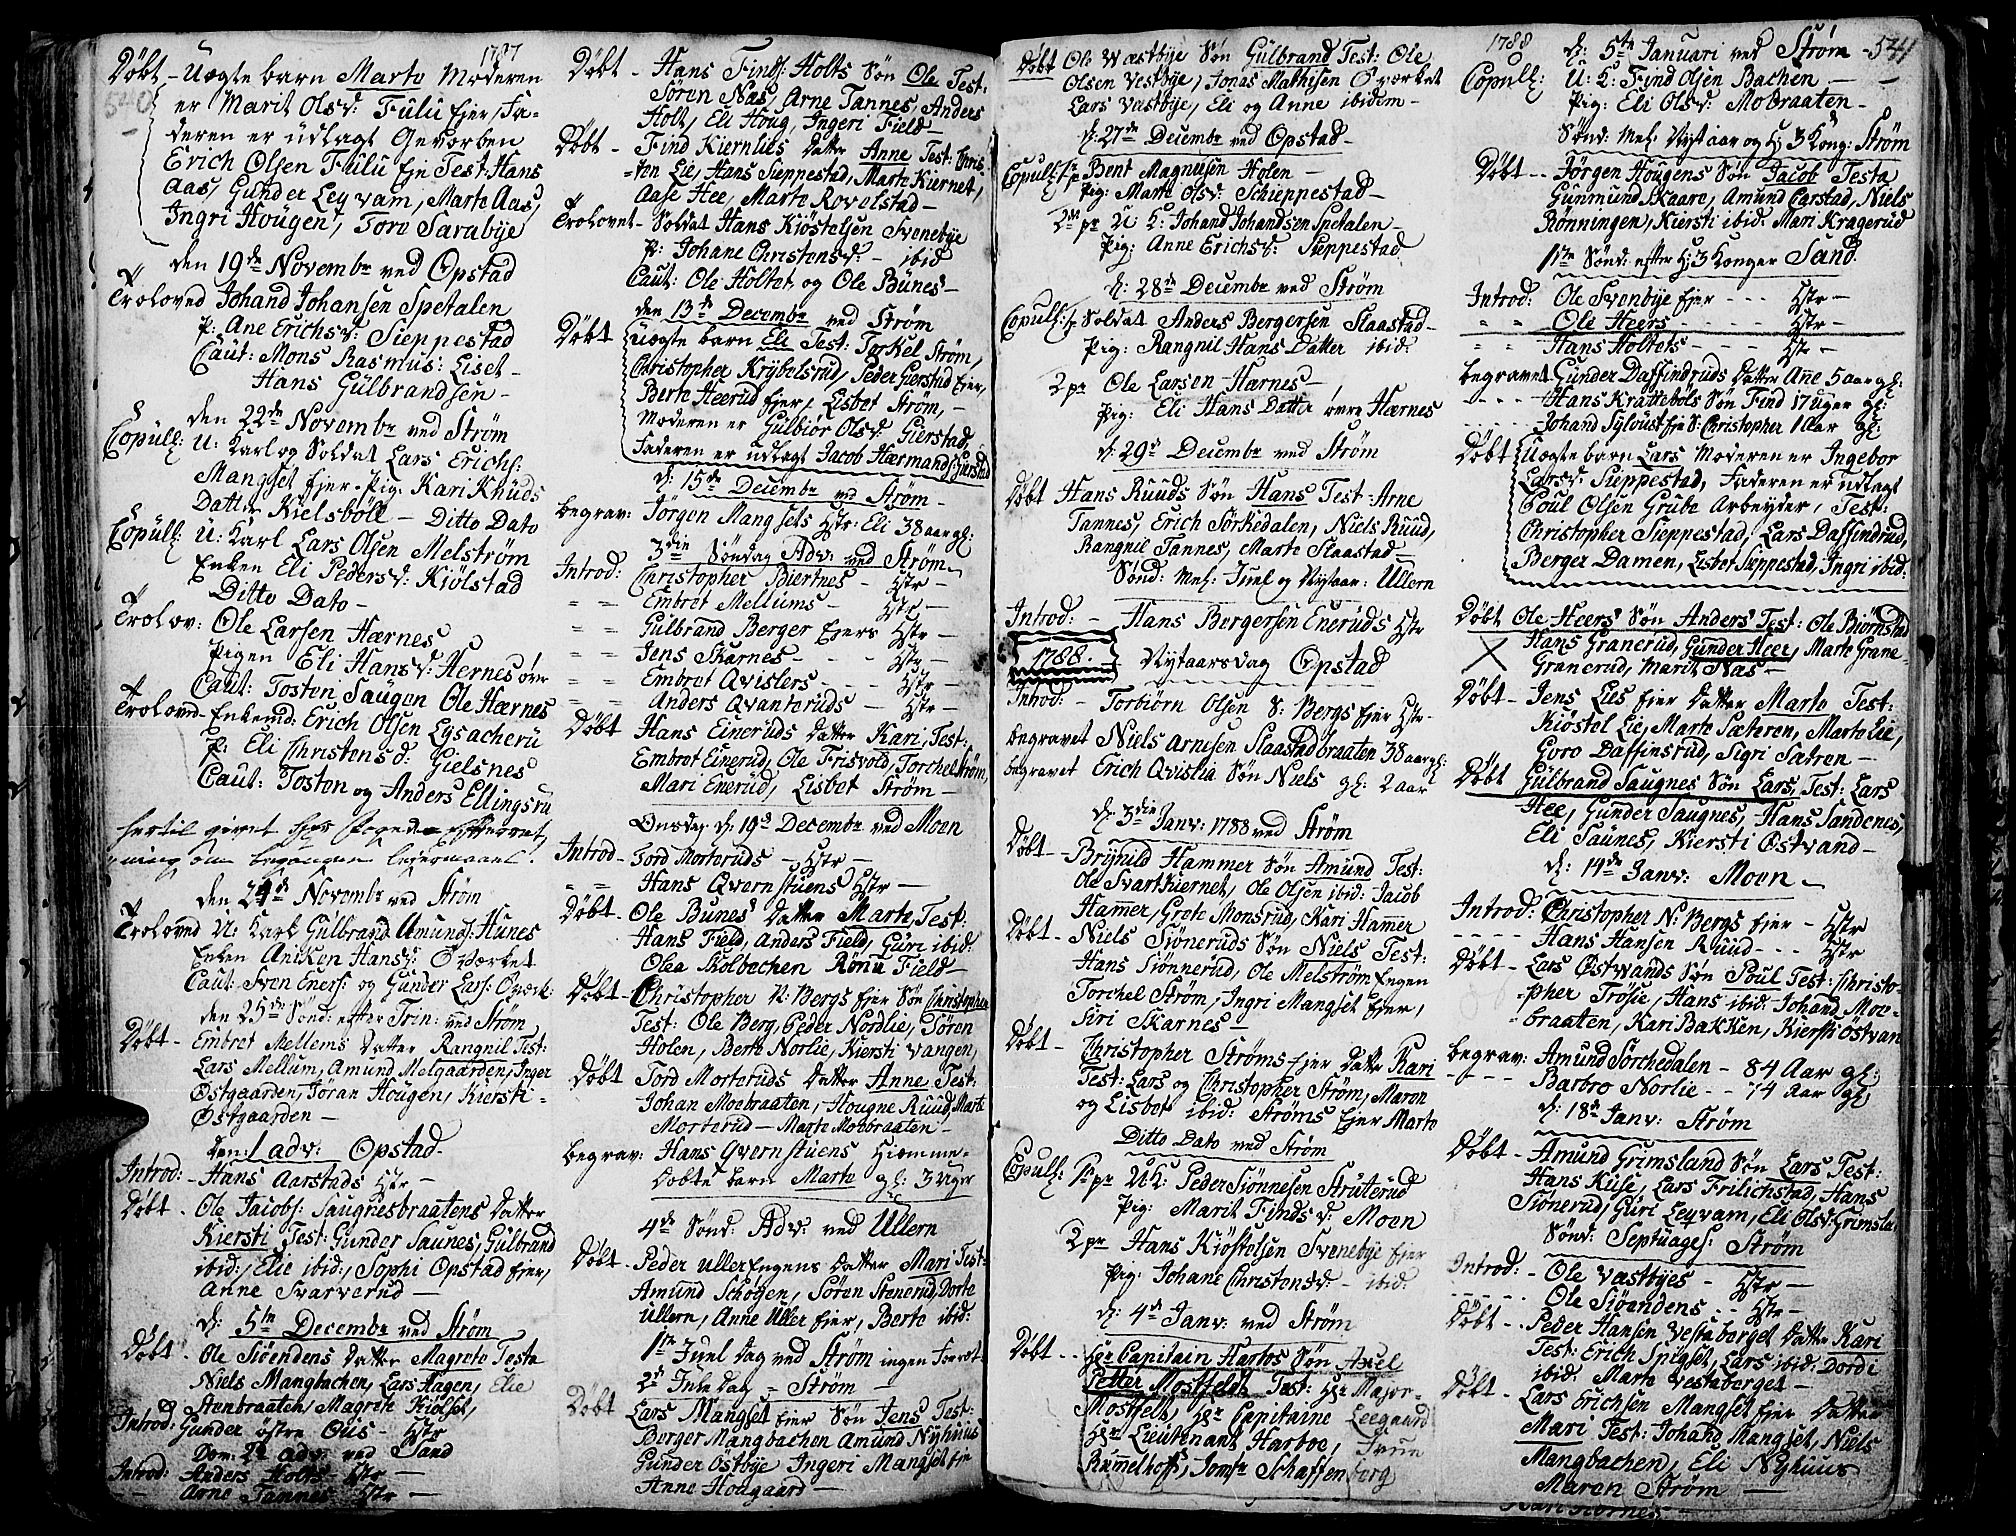 1787
540
Döbt - Uægte barn Marte Moderen
er Marit Olsd: Fulu Ejer, Fa-
deren er udlagt Gevorben
Erich Olsen Fulu Eje Test: Hans
Aas, Gunder Leqvam, Marte Aas,
Ingri Hougen, Tore Sarubÿe
den 19de Novembr ved Opstad
Troloved Johand Johansen Spetalen
P: Ane Erichsd: Sieppestad
Caut: Mons Rasmus: Liset -
Hans Gülbrandsen -
den 22de Novembr ved Ström
Copull: U: Karl og Soldat Lars Erichs:
Mangset Ejer - Pig. Kari Knüds
Datter Kielsböll - Ditto Dato
Copull: U: Karl Lars Olsen Melström
Enken Eli Pedersd: Kiölstad
Ditto Dato -
Trolov: Ole Larsen Hærnes
Pigen Eli Hansd: Hernes övre
Caut: Tosten Saugen Ole Hærnes
Trolovd - Enkemd: Erich Olsen Lysacherü
P: Eli Christensd: Gielsnes
Caut: Tosten og Anders Ellingsrü
den 24de Novembr ved Ström
Troloved U: Karl Gülbrand Amunds: Hunes
Enken Anicken Hansd: Oværket
Caut: Sven Eners: og Gunder Lars: Oværk:
den 25de Sönd: efter Trin: ved Ström
Döbt - Embret Mellems Datter Rangnil Test:
Lars Mellum, Amund Melgaarden, Inger
Östgaarden, Jöran Hougen, Kiersti -
Östgaarden -
Dom: 1 adv: Opstad -
Introd: - Hans Aarstads Hstr -
Döbt - Ole Jacobs: Saugnesbraatens Datter
Kiersti Test: Gunder Saunes, Gülbrand
ibid:, Elie ibid:, Sophi Opstad Ejer,
Anne Svarverud -
d: 5te Decembr ved Ström
Döbt - Ole Siöendens Datter Magrete Teste
Niels Mangbachen, Lars Hagen, Elie
Stenbraaten, Magrete Kiölset,
Introd: Gunder östre Ous - Hstr
Dom: 2de adv: ved Sand
Introd: Anders Holts Hstr -
Arne Tannes Hstr -
Döbt - Hans Finds: Holts Sön Ole Test:
Sören Næs, Arne Tannes, Anders
Holt, Eli Houg, Ingeri Field -
Döbt - Find Kiernlies Datter Anne Test: Chris-
ten Lie, Hans Sieppestad, Marte Kiernet,
Aase Hee, Marte Rovelstad -
Trolovet - Soldat Hans Kiöstelsen Svenebye
P: Johane Christensd: - ibid
Caut: Ole Holtet og Ole Bünes -
den 13de Decembr ved Ström
Döbt Uægte barn Eli Test: Torkel Ström,
Christopher Krÿbelsrud, Peder Gierstad Ejer,
Berte Heerud Ejer, Lisbet Ström, -
Moderen er Gulbiör Olsd: Gierstad,
Faderen er udlagt Jacob Hermands: Gierstad
d: 15de Decembr ved Ström -
begrav: Jörgen Mangsets Hstr: Eli 38 aar gl:
3die Söndag Adv: ved Ström -
Introd: Christopher Biertnes - Hstr -
Embret Mellums - Hstr -
Gulbrand Berger Ejers Hstr -
Jens Skarnes - Hstr -
Embret Qvislers - Hstr -
Anders Qvanteruds - Hstr -
Döbt Hans Einerüds Datter Kari, Test:
Embret Einerud, Ole Frisvold, Torchel Ström,
Mari Enerüd, Lisbet Ström -
Onsdag d: 19de Decembr ved Moen
Introd - Tord Morteruds - Hstr -
Hans Qvernstuens Hstr -
Döbt - Ole Bunes Datter Marte, Test:
Hans Field, Anders Field, Guri ibid:
Olea Skolbachen Rönnu Field -
Döbt - Christopher N: Bergs Ejer Sön Christopher
Test: Ole Berg, Peder Nordlie, Sören
Holen, Berte Norlie, Kiersti Vangen,
Döbt Tord Morteruds Datter Anne, Test:
Johan Moebraaten, Hougne Ruud, Marte
Morterud - Marte Moebraaten -
begrav: Hans Qvernstuens Hiemme-
Döbte barn Marte gl: 3 Uger
4de Sönd: Adv: ved Ullern
Döbt - Peder UllerEngens Datter Mari Test:
Amund Schögen, Sören Stenerud, Dorte
Ullern, Anne Uller Ejer, Berte ibid:
1te Juel Dag ved Ström ingen Forret:
2de Jule Dag - Ström -
Döbt Lars Mangset Ejer Sön Jens Test:
Berger Mangbachen Amund Nyhuus
Gunder Östbye Ingeri Mangset Eje
Anne Hougaard -
Döbt Ole Væstbÿe Sön Gülbrand Test: Ole
Olsen Vestbÿe, Jonas Mathisen Oværket
Lars Væstbÿe, Eli og Anne ibidem -
d: 27de Decembr ved Opstad -
Copull: 1te pr Bent Magnussen Holen -
Pig: Marte Olsd: Schieppestad -
2de pr U: K: Johand Johandsen Spetalen -
Pig: Anne Erichsd: Sieppestad
d: 28de Decembr ved Ström
Copull: Soldat Anders Bergersen Slaastad -
Pig: Rangnil Hans Datter ibid:
2 pr Ole Larsen Hærnes -
Pig: Eli Hans Datter övre Hærnes
d: 29de Decembr ved Ström
Döbt Hans Ruuds Sön Hans Test: Arne
Tannes, Erich Sörkedalen, Niels Ruud,
Rangnil Tannes, Marte Slaastad -
Sönd: mel: Juel og Nytaar: Ullern
Introd: - Hans Bergersen Eneruds Hstr
1788. Nytaarsdag Opstad
Introd: - Torbiörn Olsen S: Bergs Ejer Hstr -
begravet Niels Arnesen Slaastadbraaten 38 aar gl:
begravet Erich Qvistlia Sön Niels gl: 2 aar
d: 3die Janv: 1788 ved Ström
Döbt - Brynild Hammer Sön Amund Test:
Ole Svartkiernet, Ole Olsen ibid: Jacob
Hammer, Grete Monsrud, Kari Hammer
Döbt - Niels Siöneruds Sön Niels Test:
Hans Siönnerüd, Ole Melström Engen
Torchel Ström, Ingri Mangset Ejer,
Siri Skarnes -
Döbt - Christopher Ströms Ejer Datter Kari
Test: Lars og Christopher Ström, Maren
og Lisbet ibid: Ströms Ejer Marte
Ditto Dato ved Ström
Copull: 1te pr U: K: Peder Siönnesen Struterud
Pig: Marit Finds D: Moen
2 pr Hans Kiöstelsen Svenebÿe Ejer
Pig: Johane Christensd: - ibid:
d: 4de Janv: ved Ström
Döbt - Hr Capitain Harboes Sön Axel
Petter Mostfeldt Test: Hr Major
Mostfelt, Hr Capitaine Leegaard
Hr Lieutenant Harboe, Frue
Rummelhoff, Jomfr Schaffenberg
1788
541
d: 5te Januari ved Ström -
Copull: U: K: Find Olsen Bachen -
Pig: Eli Olsd: Mobraaten -
Sönd: mel: Nytaar og H: 3 Kong: Ström
Döbt - Jörgen Hougens Sön Jacob Testa
Gunmund Skaare, Amund Carstad, Niels
Rönningen, Kiersti ibid: Mari Kragerud
1te Sönd: efter H: 3 Konger Sand
Introd: Ole Svenbÿe Ejer - Hstr -
Ole Heers - Hstr -
Hans Holtets - Hstr -
begravet Gunder Daffindruds Datter Anne 5 aar gl:
Hans Krattebols Sön Find 17 Uger gl:
Johand Sylvust Eje S: Christopher 1 Aar gl:
Döbt Uægte barn Lars Moderen er Ingebor
Larsd: Sieppestad, Faderen er udlagt
Poul Olsen Grube Arbeyder, Test:
Christopher Sieppestad, Lars Daffindrud,
Berger Damen, Lisbet Sieppestad, Ingri ibid:
Döbt Ole Heers Sön Anders Test: Ole Biörnstad
Hans Granerud, Gunder Heer, Marte Grane-
Granerud, Marit Næs -
Döbt - Jens Lies Ejer Datter Marte Test:
Kiöstel Lie, Marte Sæteren, Marte Lie,
Goro Daffinsrud, Sigri Satren -
Döbt Gülbrand Saugnes Sön Lars, Test: Lars
Hee, Gunder Saugnes, Hans Sandenes,
Eli Saunes, Kiersti Østvand -
d: 14de Janv: Moen -
Introd: Christopher N: Bergs Ejer - Hstr
Hans Hansen Ruud - Hstr
Döbt - Lars Østwands Sön Poul Test: Christo-
pher Trösie, Hans ibid: Johand Moe-
braaten, Kari Bakken, Kiersti Östvan
begrav: Amund Sorchedalen - 84 Aar gl:
Barbro Norlie - 74 Aar gl:
d: 18de Janv: Ström
Döbt - Amund Grimsland Sön Lars Test:
Hans Kuse, Lars Frilichstad, Hans
Siönerud, Guri Leqvam, Eli Olsd: Grimsla
Sönd: Septuages: Ström
Introd: - Ole Væstbÿes - Hstr -
Ole Siöendens - Hstr -
Döbt - Peder Hansen Vestaberget Datter Kari
Test: Erich Spigset, Lars ibid: Dordi
ibid: Marte Vestaberget -
Döbt - Lars Erichsen Mangset Ejer Datter
Mari Test: Johand Mangset, Niels
Mangbachen, Eli Nyhuus
Maren Ström -